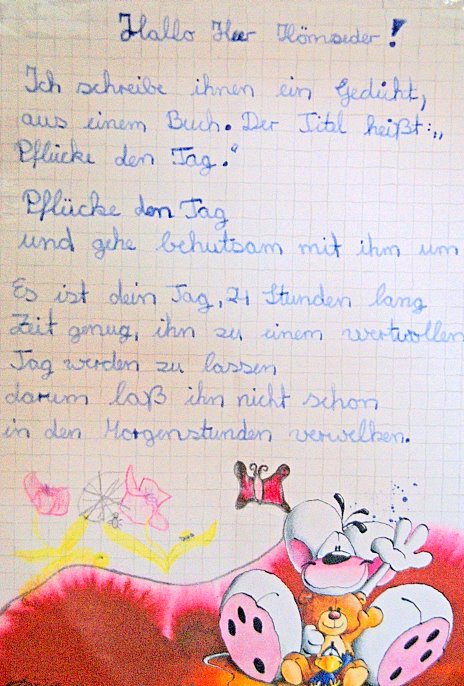 Hallo Herr Hörnseder!
Ich schreibe ihnen ein Gedicht,
aus einem Buch. Der Titel heißt:„
Pflücke den Tag.“
Pflücke den Tag
und gehe behutsam mit ihm um
Es ist dein Tag, 24 Stunden lang
Zeit genug, ihn zu einem wertvollen
Tag werden zu lassen
darum laß ihn nicht schon
in den Morgenstunden verwelken.